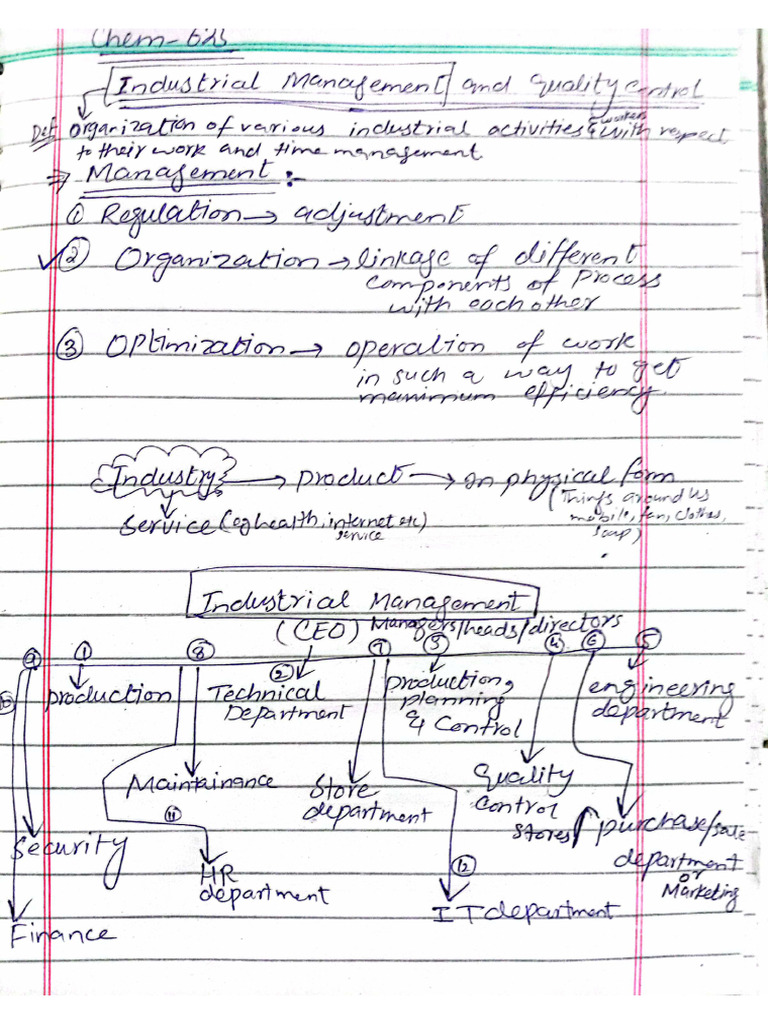 Chem-625
Industrial Management and Quality control
Def Organization of various industrial activities & workers with respect
to their work and time management.
⇒ Management :-
① Regulation → adjustment
✓② Organization → linkage of different
components of process
with eachother
③ Optimization → operation of work
in such a way to get
maximum efficiency
Industry → product → in physical form
(Things around us
mobile, fan, clothes,
soap)
Service (eg health, internet etc)
service
Industrial Management
(CEO) Managers/heads/directors
⑨ ① ⑧ ⑦ ③ ④ ⑥ ⑤
⑩ production
② Technical
Department
production,
planning
& Control
engineering
department
Maintainance
Store
department
Quality
Control
stores
purchase/sale
department
or
Marketing
Security
⑪ HR
department
⑫ IT department
Finance